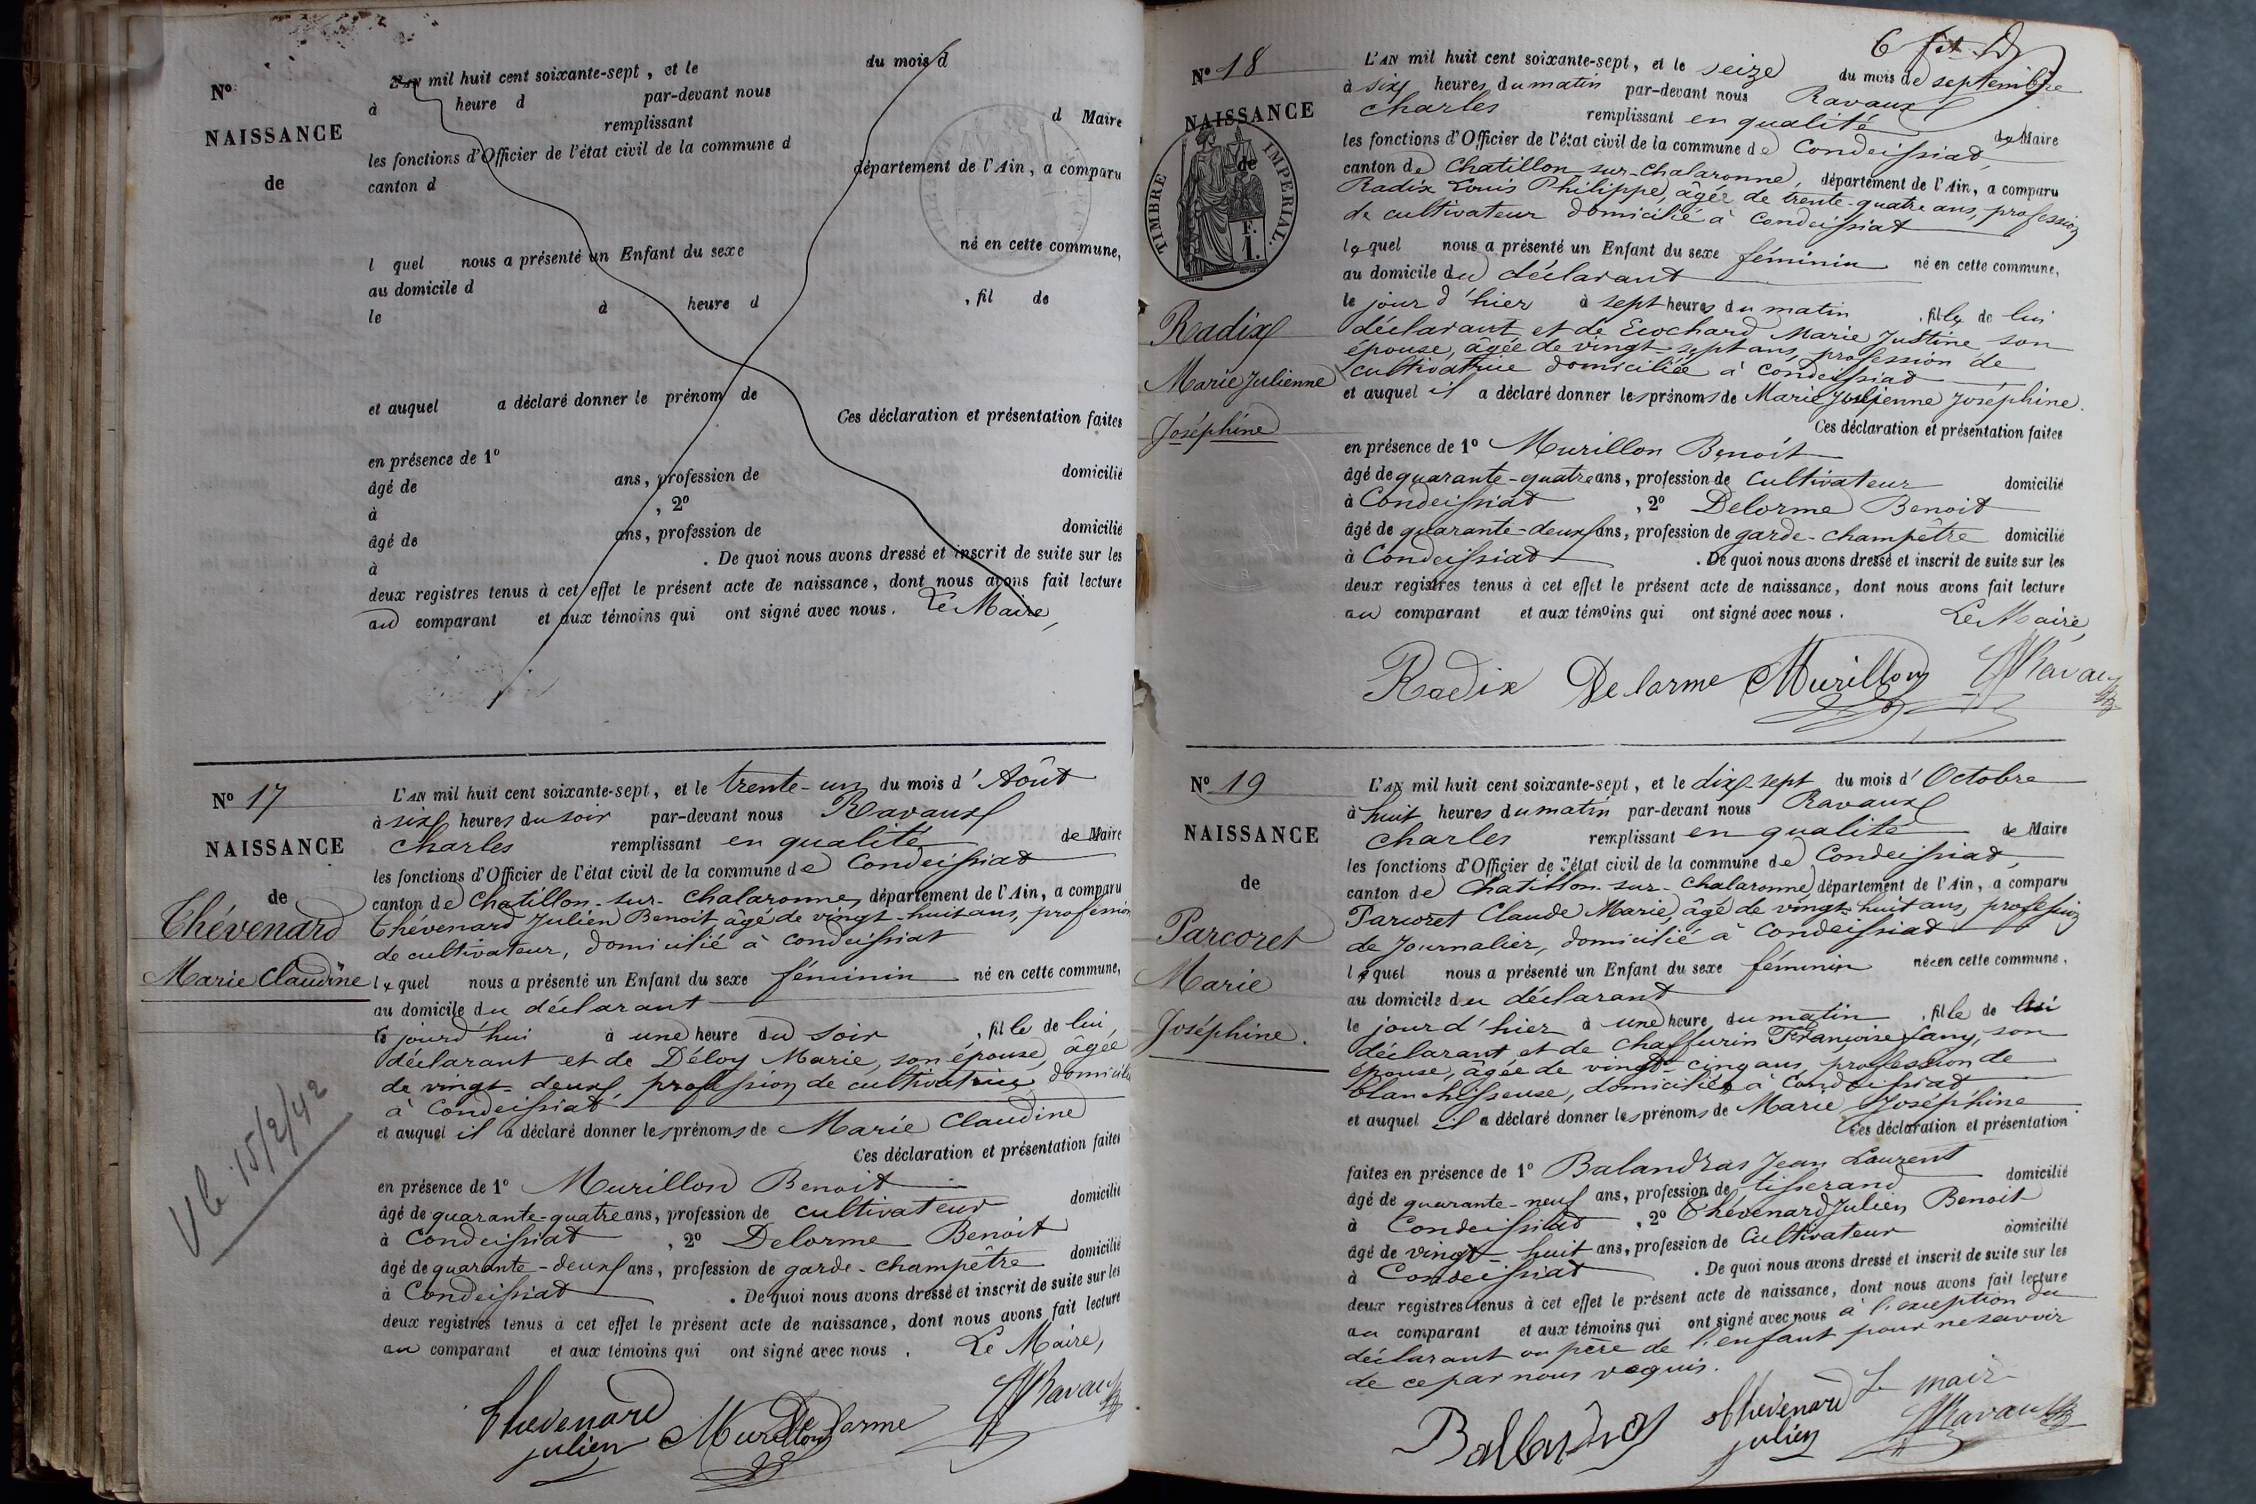 No
NAISSANCE
de
L'AN mil huit cent soixante-sept, et le du mois d
à heure d par-devant nous
remplissant d Maire
les fonctions d'Officier de l'état civil de la commune d
canton d département de l'Ain, a comparu
l quel nous a présenté un Enfant du sexe né en cette commune,
au domicile d
le à heure d , fil de
et auquel a déclaré donner le prénom de
Ces déclaration et présentation faites
en présence de 1o
âgé de ans, profession de domicilié
à , 2o
âgé de ans, profession de domicilié
à . De quoi nous avons dressé et inscrit de suite sur les
deux registres tenus à cet effet le présent acte de naissance, dont nous avons fait lecture
au comparant et aux témoins qui ont signé avec nous. Le Maire,
No 17
NAISSANCE
de
Thévenard
Marie Claudine
15/2/42
L'AN mil huit cent soixante-sept, et le trente-un du mois d'Août
à six heures du soir par-devant nous Ravaux
Charles remplissant en qualité de Maire
les fonctions d'Officier de l'état civil de la commune de Condeissiat
canton de Chatillon-sur-Chalaronne, département de l'Ain, a comparu
Thévenard Julien Benoit âgé de vingt-huit ans, profession
de cultivateur, domicilié à Condeissiat
lequel nous a présenté un Enfant du sexe féminin né en cette commune,
au domicile du déclarant
le jourd'hui à une heure du soir , fille de lui,
déclarant et de Déloy Marie, son épouse, âgée
de vingt-deux, profession de cultivatrice, domicilié
à Condeissiat
et auquel il a déclaré donner les prénoms de Marie Claudine
Ces déclaration et présentation faites
en présence de 1o Murillon Benoit
âgé de quarante-quatre ans, profession de cultivateur domicilié
à Condeissiat , 2o Delorme Benoit
âgé de quarante-deux ans, profession de garde-champêtre domicilié
à Condeissiat . De quoi nous avons dressé et inscrit de suite sur les
deux registres tenus à cet effet le présent acte de naissance, dont nous avons fait lecture
au comparant et aux témoins qui ont signé avec nous. Le Maire,
Thevenard
julien Murillon Delorme Ravaux
No 18
NAISSANCE
de
TIMBRE IMPERIAL.
F. 1.
Radix
Marie Julienne
Joséphine
L'AN mil huit cent soixante-sept, et le seize du mois de septembre
à six heures du matin par-devant nous Ravaux
Charles remplissant en qualité de Maire
les fonctions d'Officier de l'état civil de la commune de Condeissiat
canton de Chatillon-sur-Chalaronne, département de l'Ain, a comparu
Radix Louis Philippe, âgée de trente-quatre ans, profession
de cultivateur domicilié à Condeissiat
lequel nous a présenté un Enfant du sexe féminin né en cette commune,
au domicile du déclarant
le jour d'hier à sept heures du matin , fille de lui
déclarant et de Ecochard Marie Justine son
épouse, âgée de vingt-sept ans, profession de
cultivatrice domiciliée à Condeissiat
et auquel il a déclaré donner les prénoms de Marie Julienne Joséphine.
Ces déclaration et présentation faites
en présence de 1o Murillon Benoit
âgé de quarante-quatre ans, profession de cultivateur domicilié
à Condeissiat , 2o Delorme Benoit
âgé de quarante-deux ans, profession de garde-champêtre domicilié
à Condeissiat . De quoi nous avons dressé et inscrit de suite sur les
deux registres tenus à cet effet le présent acte de naissance, dont nous avons fait lecture
au comparant et aux témoins qui ont signé avec nous. Le Maire,
Radix Delorme Murillon Ravaux
No 19
NAISSANCE
de
Parcoret
Marie
Joséphine.
L'AN mil huit cent soixante-sept, et le dix-sept du mois d'Octobre
à huit heures du matin par-devant nous Ravaux
Charles remplissant en qualité de Maire
les fonctions d'Officier de l'état civil de la commune de Condeissiat,
canton de Chatillon-sur-Chalaronne, département de l'Ain, a comparu
Parcoret Claude Marie, âgé de vingt-huit ans, profession
de Journalier, domicilié à Condeissiat
lequel nous a présenté un Enfant du sexe féminin née en cette commune,
au domicile du déclarant
le jour d'hier à une heure du matin , fille de lui
déclarant et de Chaffurin Françoise fany, son
épouse, âgée de vingt-cinq ans, profession de
blanchisseuse, domiciliée à Condeissiat
et auquel il a déclaré donner les prénoms de Marie Joséphine
Ces déclaration et présentation
faites en présence de 1o Balandras Jean Laurent
âgé de quarante-neuf ans, profession de tisserand domicilié
à Condeissiat , 2o Thévenard Julien Benoit
âgé de vingt-huit ans, profession de Cultivateur domicilié
à Condeissiat . De quoi nous avons dressé et inscrit de suite sur les
deux registres tenus à cet effet le présent acte de naissance, dont nous avons fait lecture
au comparant et aux témoins qui ont signé avec nous à l'exception du
déclarant ou père de l'enfant pour ne savoir
de ce par nous requis.
Le maire
Ballandras thevenard
julien Ravaux